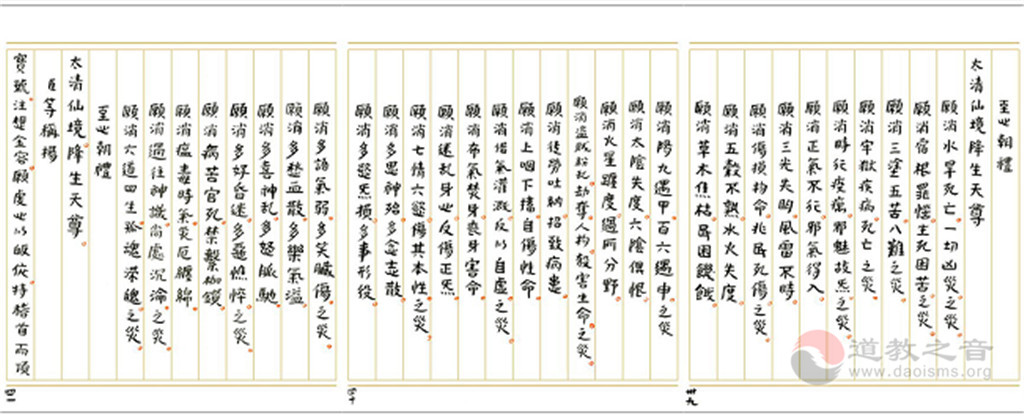 至心朝禮
太清仙境降生天尊
願消水旱死亡一切凶災之災
願消宿根罪慳生死困苦之災
願消三塗五苦八難之災
願消牢獄疾病死亡之災
願消時行疫癘邪魅故炁之災
願消正氣不行邪氣得入
願消三光失明風雷不時
願消傷損物命兆民死傷之災
願消五穀不熟水火失度
願消草木焦枯民困饑餓
卅九
願消陽九遇甲百六遇申之災
願消太陰失度六陰偶恨
願消火星躔度過所分野
願消盜賊紛乱劫奪人物殺害生命之災
願消後勞吐納招致病患
願消上咽下擂自傷性命
願消借氣灌溉反以自虛之災
願消布氣焚身喪身害命
願消迷乱身心反傷正炁
願消七情六慾傷其本性之災
願消多思神殆多念志散
願消多慾炁損多事形役
四十
願消多語氣弱多笑臟傷之災
願消多愁血散多樂氣溢
願消多喜神乱多怒脈馳
願消多好昏迷多惡憔悴之災
願消病苦官死禁繫枷鎖
願消瘟毒時氣災厄纏綿
願消過往神識尚處沉淪之災
願消六道四生孤魂滯魄之災
至心朝禮
太清仙境降生天尊
臣等稱揚
寶號注想金容願虔心以皈依持稽首而頂
四一
道教之音
www.daoisms.org